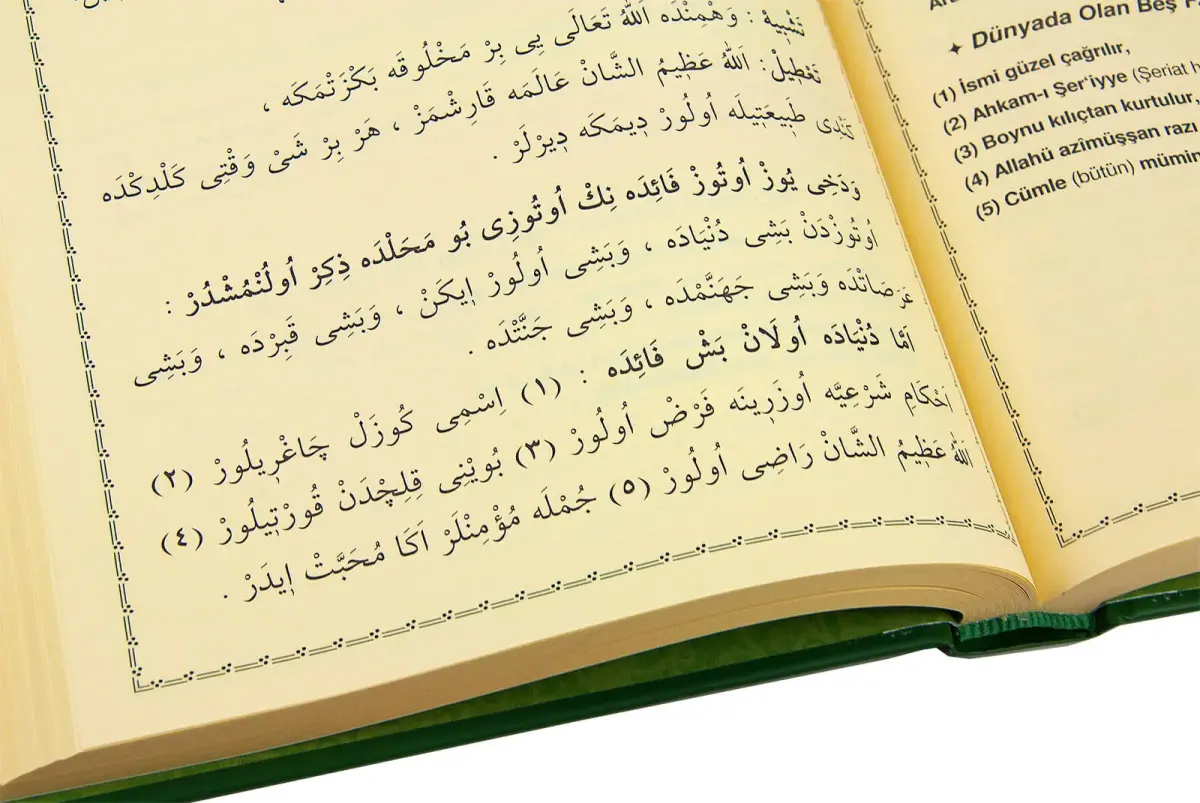 تَشْبِيهْ : وَهْمِنْدَه اَللّٰهُ تَعَالٰى يِى بِرْ مَخْلُوقَه بَكْزَتْمَكَه ،
تَعْطِيلْ : اَللّٰهُ عَظِيمُ الشَّانْ عَالَمَه قَارِشْمَزْ ، هَرْ بِرْ شَىْ وَقْتِى كَلْدِكْدَه
كَنْدِى طَبِيعَتِيلَه اُولُورْ دِيمَكَه دِيرْلَرْ .
وَدَخِى يُوزْ اُوتُوزْ فَائِدَه نِكْ اُوتُوزِى بُو مَحَلْدَه ذِكِرْ اُولُنْمُشْدُرْ :
اُوتُوزْدَنْ بَشِى دُنْيَادَه ، وَبَشِى اُولُورْ اِيكَنْ ، وَبَشِى قَبِرْدَه ، وَبَشِى
عَرَصَاتْدَه وَبَشِى جَهَنَّمْدَه ، وَبَشِى جَنَّتْدَه .
اَمَّا دُنْيَادَه اُولَانْ بَشْ فَائِدَه : (١) اِسْمِى كُوزَلْ چَاغْرِيلُورْ (٢)
اَحْكَامِ شَرْعِيَّه اُوزَرِينَه فَرْضْ اُولُورْ (٣) بُويْنِى قِلِچْدَنْ قُورْتِيلُورْ (٤)
اَللّٰهُ عَظِيمُ الشَّانْ رَاضِى اُولُورْ (٥) جُمْلَه مُؤْمِنْلَرْ اَكَا مُحَبَّتْ اِيدَرْ .
✦ Dünyada Olan Beş
(1) İsmi güzel çağrılır,
(2) Ahkam-ı Şer'iyye (Şeriat
(3) Boynu kılıçtan kurtulur,
(4) Allahü azîmüşşan razı
(5) Cümle (bütün) mümin